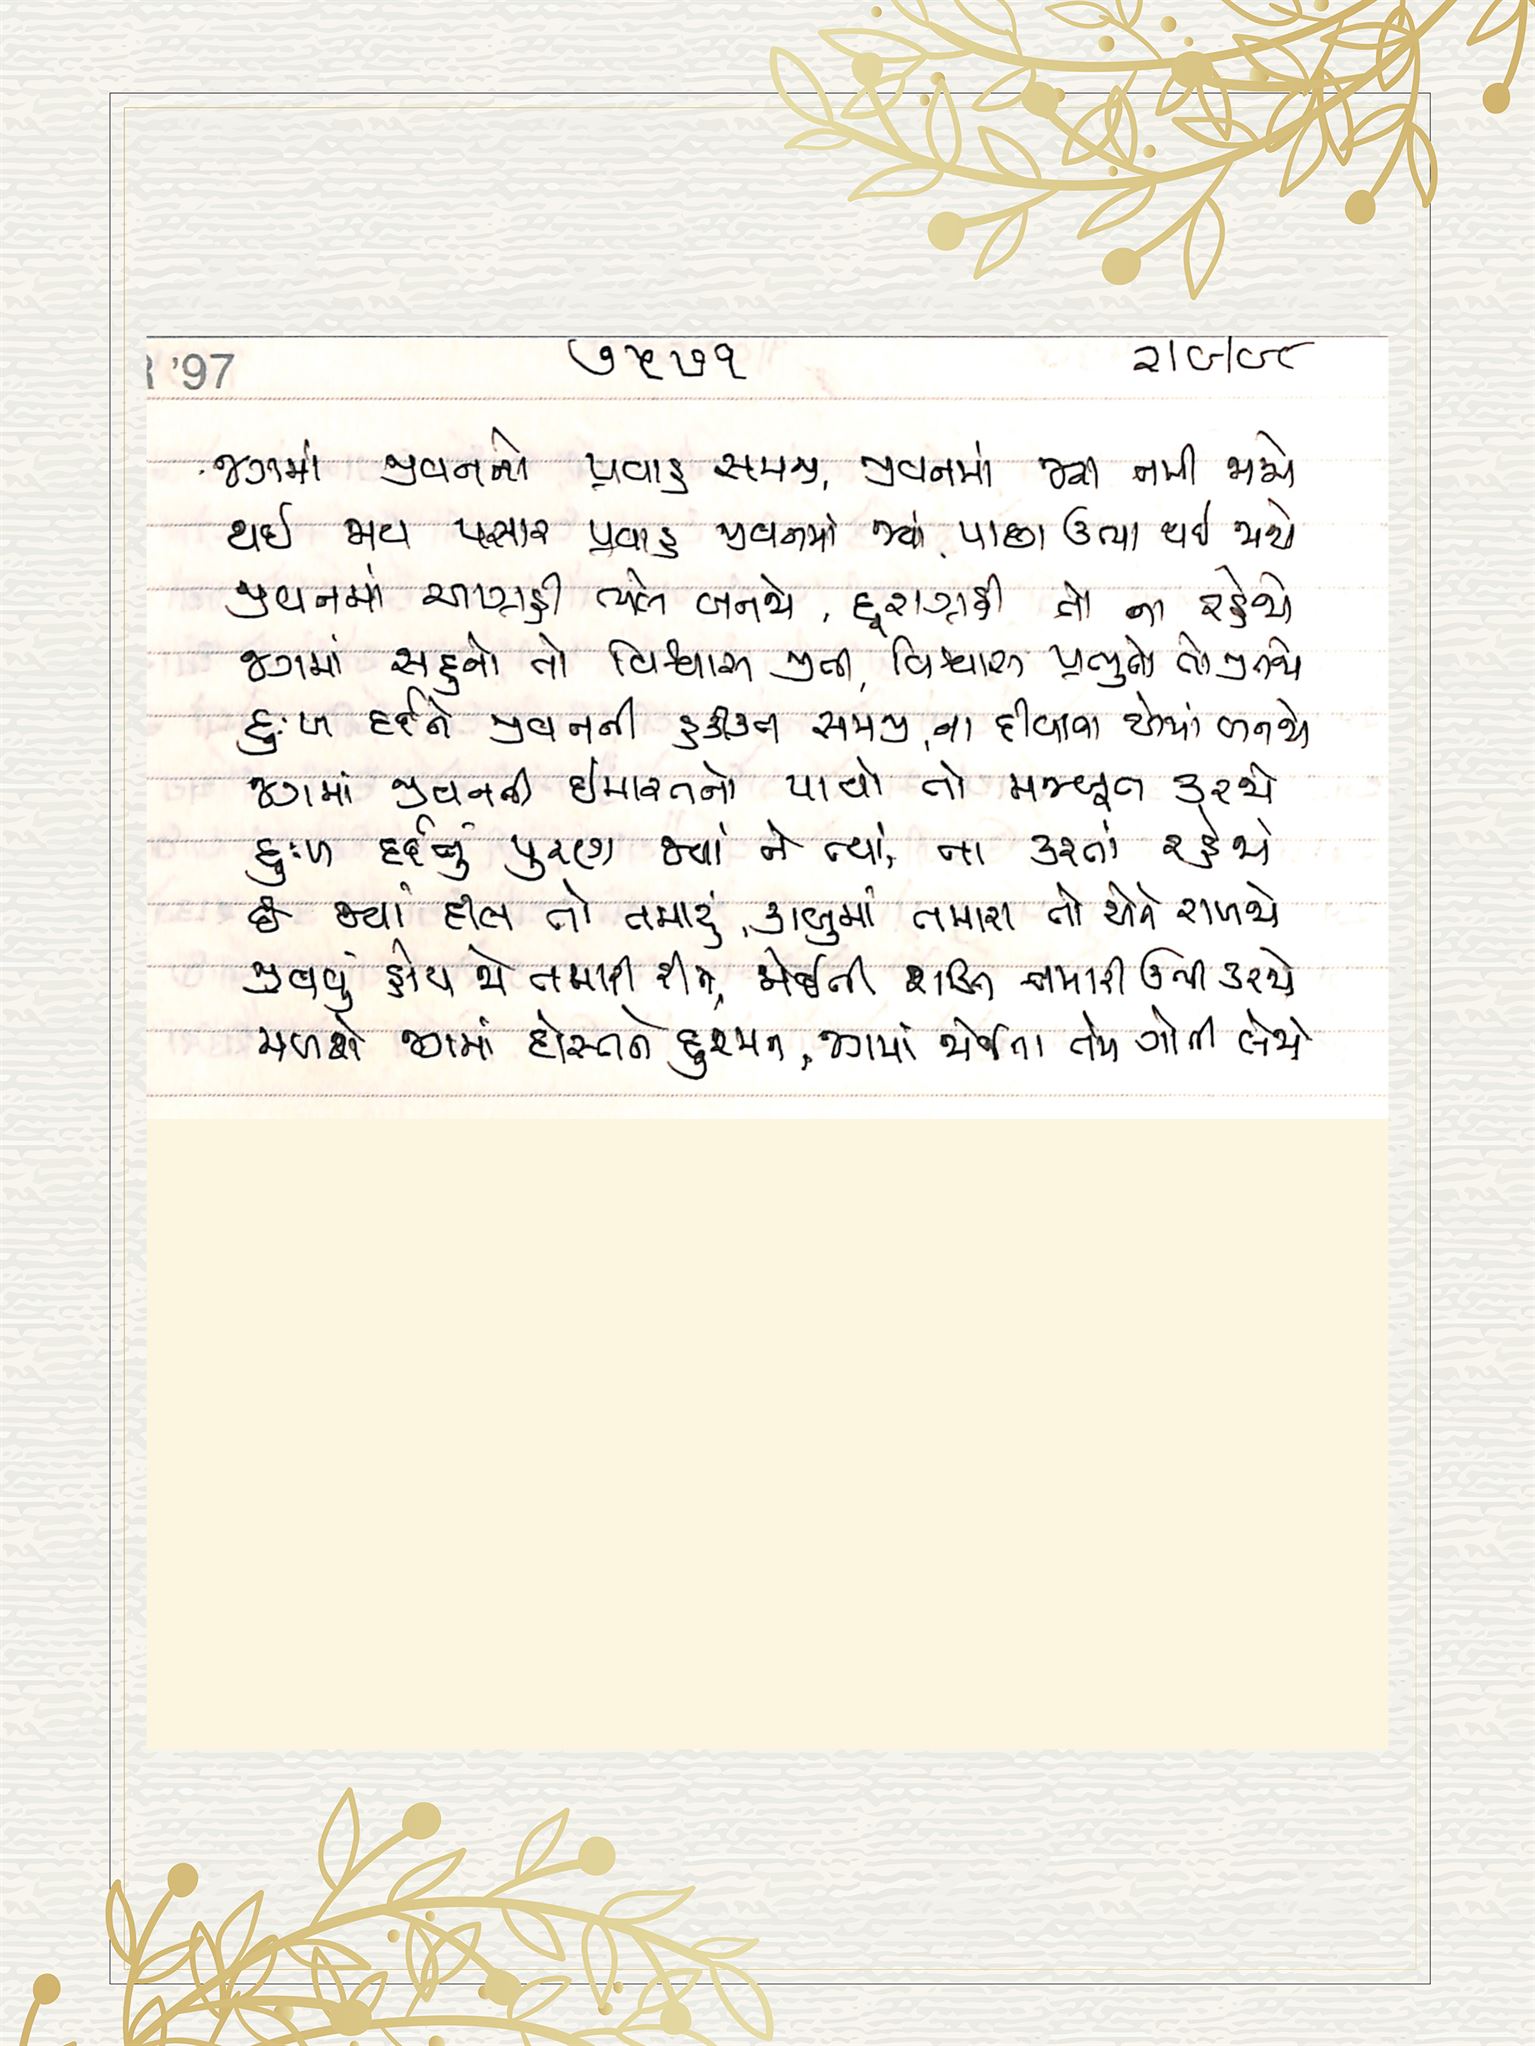 '97 ૭૫૭૧ ૨/૯/૯૮
જગમાં જીવનનો પ્રવાહ સમજી, જીવનમાં જરા નમી જાજો
થઈ જાય પસાર પ્રવાહ જીવનમાં જ્યાં, પાછા ઉભા થઈ જાજો
જીવનમાં આગ્રાહી ભલે બનજો, દુરાગ્રાહી તો ના રહેજો
જગમાં સહુનો તો વિશ્વાસ જીતી, વિશ્વાસ પ્રભુનો તો જીતજો
દુઃખ દર્દને જીવનની હકીકત સમજી, ના દીવાના એમાં બનજો
જગમાં જીવનની ઈમારતનો પાયો તો મજબૂત કરજો
દુઃખ દર્દનું પુરાણ જ્યાં ને ત્યાં, ના કરતાં રહેજો
છે જ્યાં દીલ તો તમારું, કાબુમાં તમારા તો એને રાખજો
જીવવું હોય જો તમારી રીતે, ધૈર્યની શક્તિ તમારી ઉભી કરજો
મળશે જગમાં દોસ્તને દુશ્મન, જગમાં ધૈર્યતા તેમ ગોતી લેજો